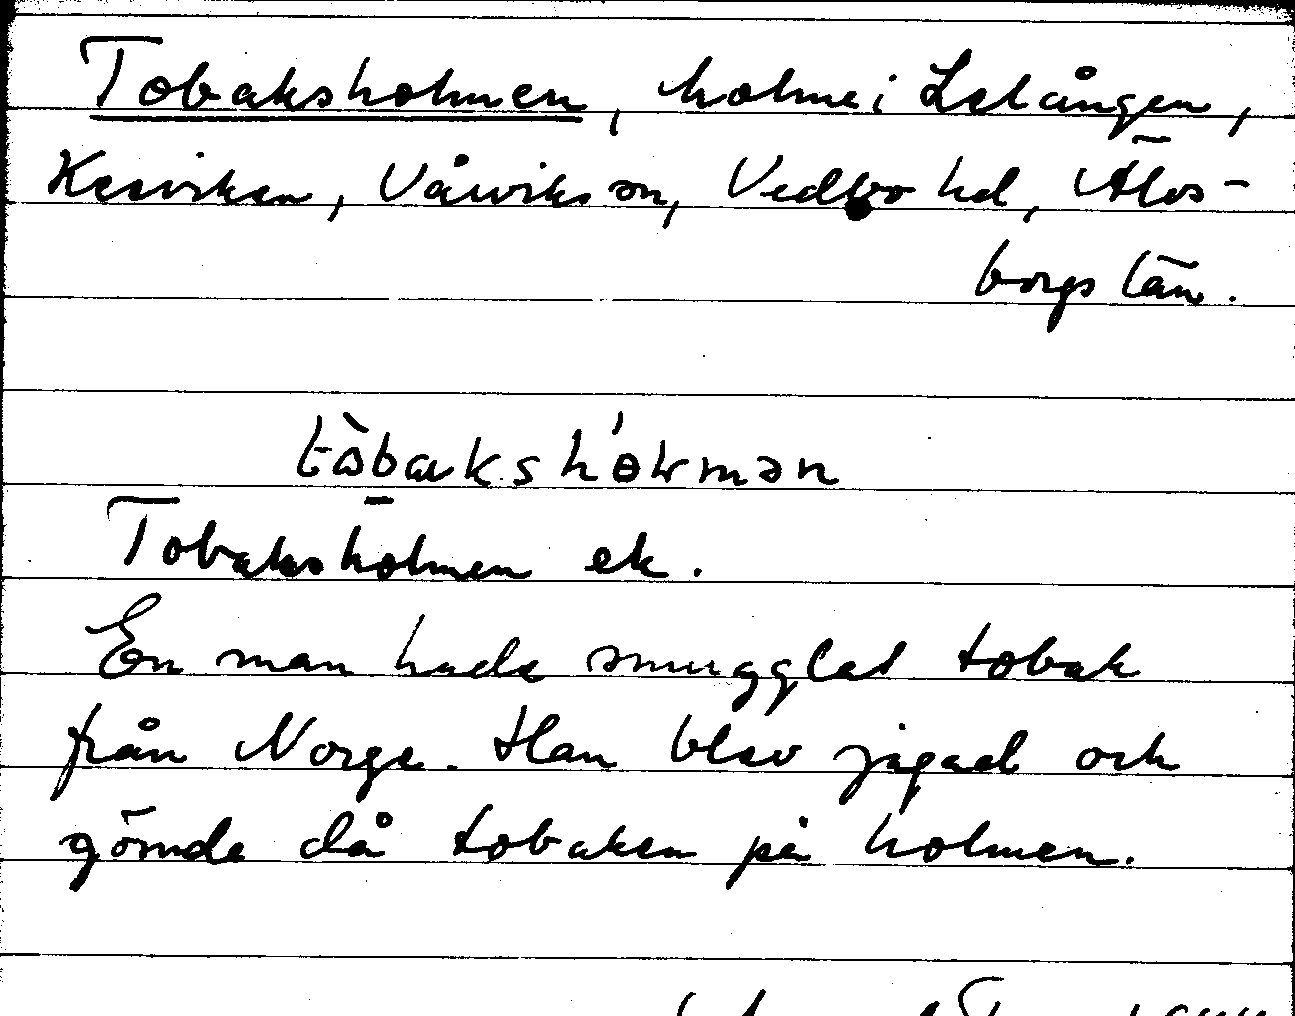 Tobaksholmen, holme i Lelången,
Kesviken, Vårviks sn, Vedbo hd, Älvs-
borgs län.
tòbakshólmən
Tobaksholmen ek.
En man hade smugglat tobak
från Norge. Han blev jagad och
gömde då tobaken på holmen.